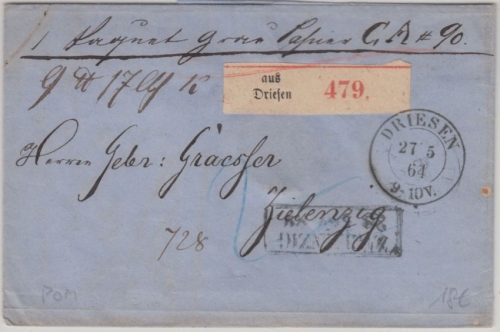 1 Paquet Grau Papier C R # 90.
9 ℔ 17 Lth
aus
Driesen
479.
DRIESEN
27 5
64
9-10V.
Herren Gebr: Graesser
Zielenzig
728
POM
18€